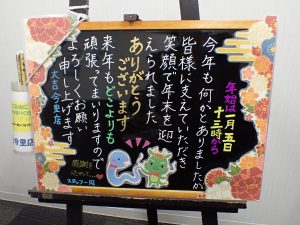 年始は一月五日
十三時から
今年も何かとありましたが
皆様に支えていただき
笑顔で年末を迎
えられました
ありがとう
ございます
来年もどこよりも
頑張ってまいりますので
よろしくお願い
申し上げます
大吉 今里店
感謝を
込めて…
スタッフ一同
今里店